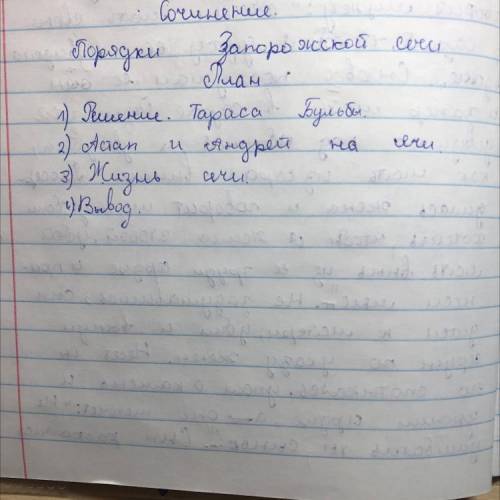 Сочинение.
Порядки Запорожской сечи
План
1) Решение. Тараса Бульбы.
2) Астап и Андрей на сечи.
3) Жизнь сечи.
4) Вывод.